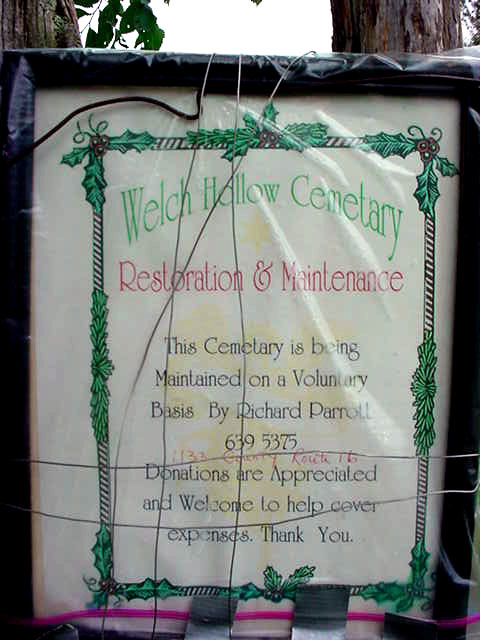 Welch Hollow Cemetary
Restoration & Maintenance
This Cemetary is being
Maintained on a Voluntary
Basis By Richard Parrott
639 5375
1133 County Route 16
Donations are Appreciated
and Welcome to help cover
expenses. Thank You.